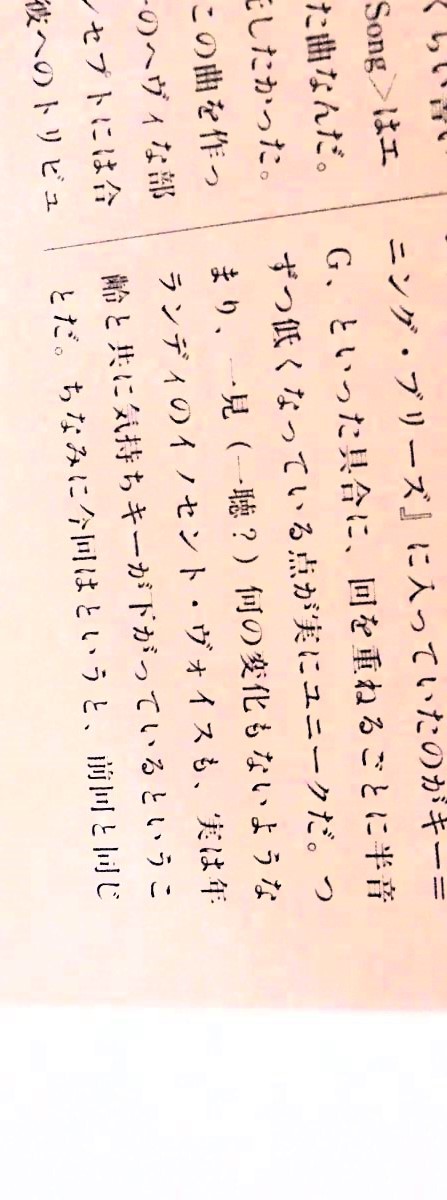 くらい書い
Song＞はエ
た曲なんだ。
したかった。
この曲を作っ
のヘヴィな部
セプトには合
彼へのトリビュ
ニング・ブリーズ』に入っていたのがキー＝
G、といった具合に、回を重ねるごとに半音
ずつ低くなっている点が実にユニークだ。つ
まり、一見（一聴？）何の変化もないような
ランディのイノセント・ヴォイスも、実は年
齢と共に気持ちキーが下がっているというこ
とだ。ちなみに今回はというと、前回と同じ